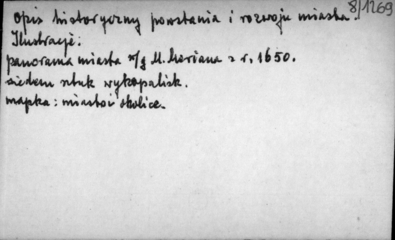 8/1269
Opis historyczny powstania i rozwoju miasta.
Ilustracje:
panorama miasta w/g M. Meriana z r. 1650.
siedem sztuk wykopalisk.
mapka: miasto i okolice.